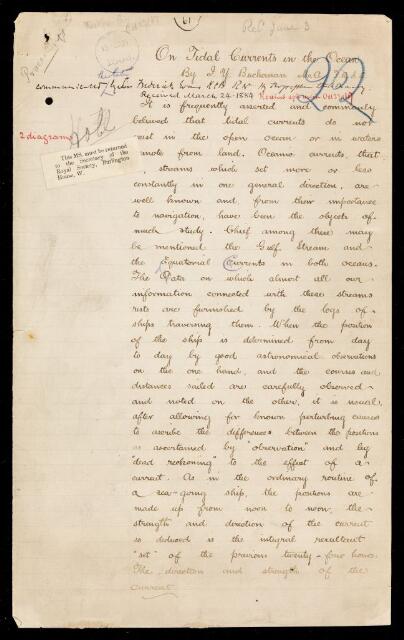 On Tidal Currents in the Ocean
By J. Y. Buchanan M.A. F.R.S.
Communicated by Frederick
Received March 26 1888
22
2 diagrams
This MS. must be returned
to the Secretary of the
Royal Society, Burlington
House, W.
It is frequently asserted and commonly
believed that tidal currents do not
exist in the open ocean or in waters
remote from land. Oceanic currents, that
is, streams which set more or less
constantly in one general direction, are
well known and, from their importance
to navigation, have been the objects of
much study. Chief among these may
be mentioned the Gulf Stream and
the Equatorial Currents in both oceans.
The Data on which almost all our
information connected with these streams
rests are furnished by the logs of
ships traversing them. When the position
of the ship is determined from day
to day by good astronomical observations
on the one hand, and the courses and
distances sailed are carefully observed
and noted on the other, it is usual,
after allowing for known perturbing causes
to ascribe the differences between the positions
as ascertained by "observation" and by
"dead reckoning" to the effect of a
current. As in the ordinary routine of
a sea-going ship, the positions are
made up from noon to noon, the
strength and direction of the current
so deduced is the integral resultant
"set" of the previous twenty-four hours.
The direction and strength of the
current